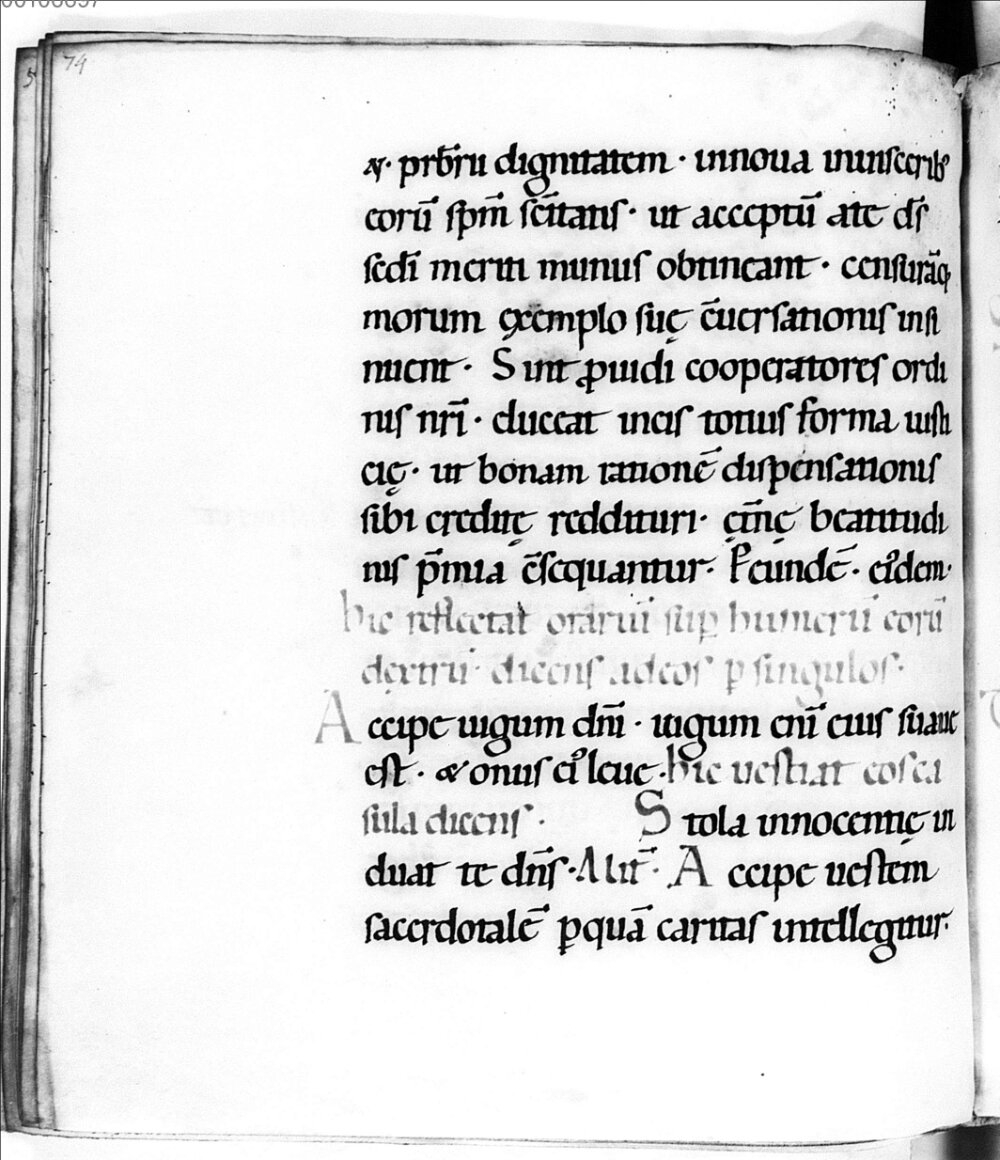 74
&· prb̄rii dignitatem · innoua inuiscerib;
eorū sp̄m sc̄itatis · ut acceptū a te ds̄
sc̄di meriti munus obtineant · censurāq;
morum exemplo suę c̄uersationis insi
nuent · Sint ꝓuidi cooperatores ordi
nis nr̄i · eluceat ineis totius forma iusti
cię · ut bonam rationē dispensationis
sibi creditę reddituri · ęt̄nę beatitudi
nis p̄mia c̄sequantur ·
hic reflectat orariū sup̱ humerū eorū
dextrū · dicens adeos p̱ singulos ·
Accipe iugum dn̄i · iugum eni̅ eius suaue
est · & onus ei᾽ leue · hic uestiat eos ca
sula dicens · Stola innocentię in
duat te dn̄s · Alit̄ · Accipe uestem
sacerdotalē p̱quā caritas intellegitur ·